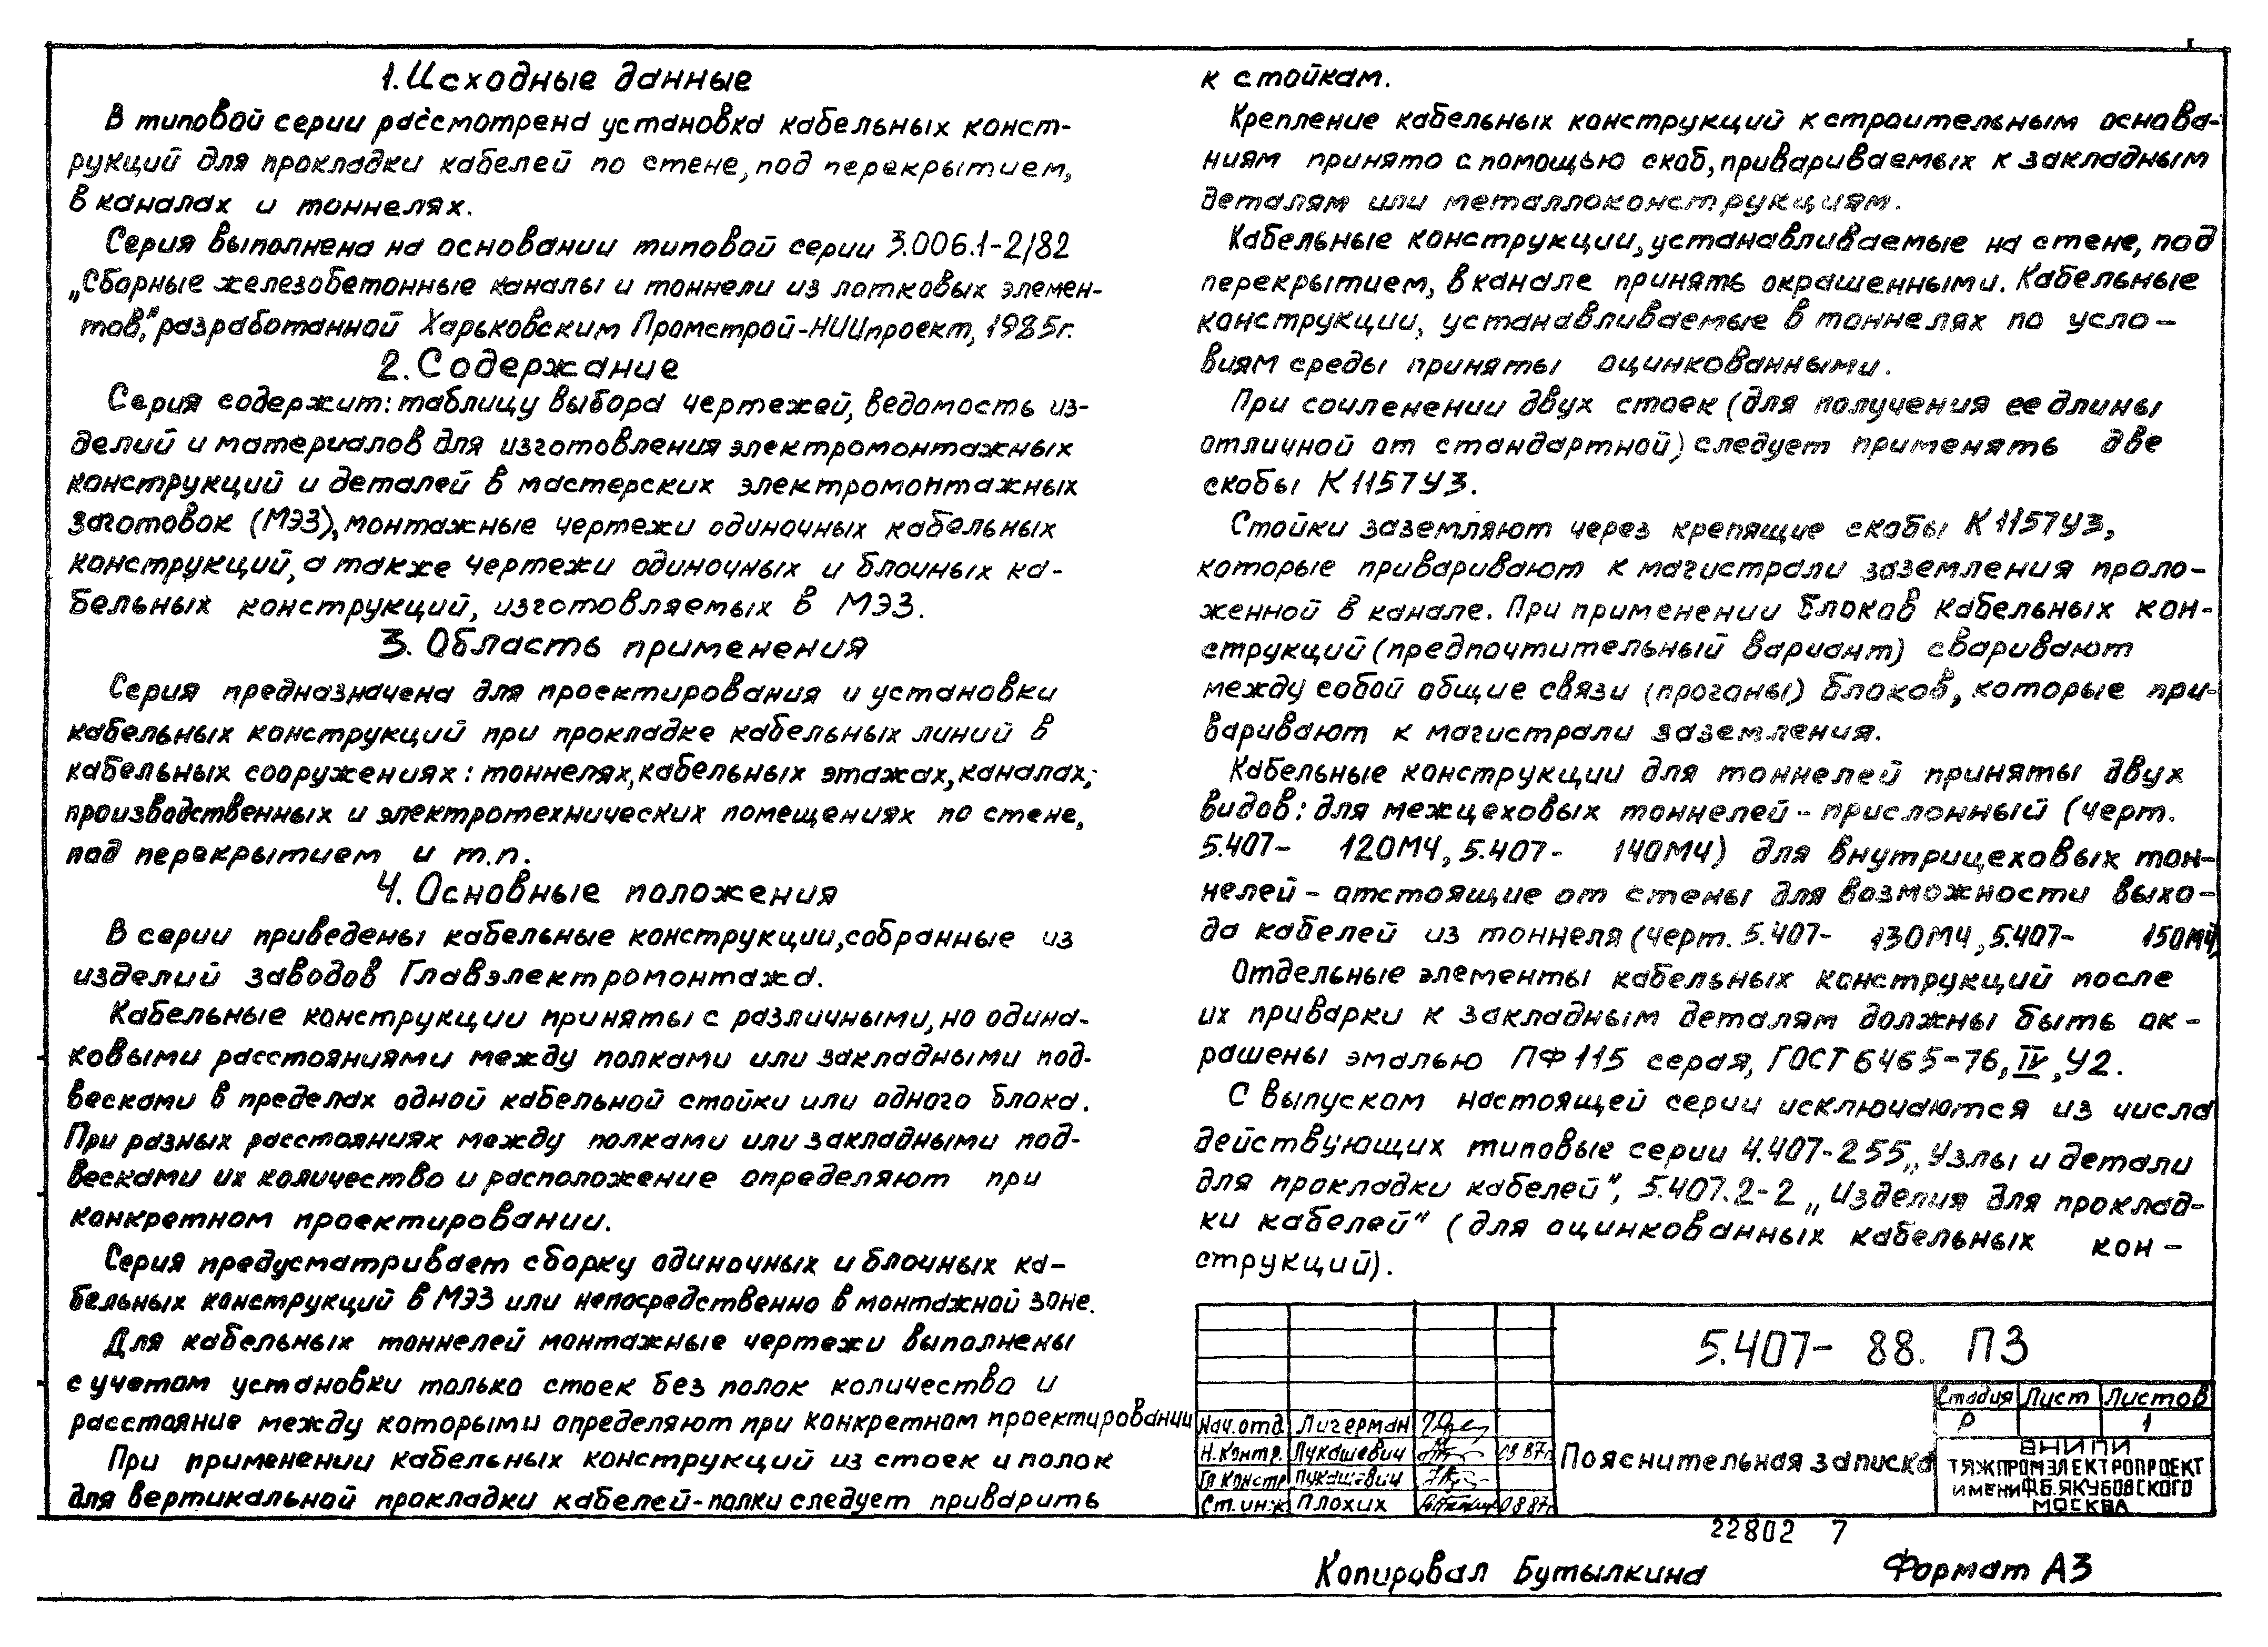 1. Исходные данные
В типовой серии рассмотрена установка кабельных конст-
рукций для прокладки кабелей по стене, под перекрытием,
в каналах и тоннелях.
Серия выполнена на основании типовой серии 3.006.1-2/82
„Сборные железобетонные каналы и тоннели из лотковых элемен-
тов," разработанной Харьковским Промстрой-НИИпроект, 1985г.
2. Содержание
Серия содержит: таблицу выбора чертежей, ведомость из-
делий и материалов для изготовления электромонтажных
конструкций и деталей в мастерских электромонтажных
заготовок (МЭЗ), монтажные чертежи одиночных кабельных
конструкций, а также чертежи одиночных и блочных ка-
бельных конструкций, изготовляемых в МЭЗ.
3. Область применения
Серия предназначена для проектирования и установки
кабельных конструкций при прокладке кабельных линий в
кабельных сооружениях: тоннелях, кабельных этажах, каналах;
производственных и электротехнических помещениях по стене,
под перекрытием и т.п.
4. Основные положения
В серии приведены кабельные конструкции, собранные из
изделий заводов Главэлектромонтажа.
Кабельные конструкции приняты с различными, но одина-
ковыми расстояниями между полками или закладными под-
весками в пределах одной кабельной стойки или одного блока.
При разных расстояниях между полками или закладными под-
весками их количество и расположение определяют при
конкретном проектировании.
Серия предусматривает сборку одиночных и блочных ка-
бельных конструкций в МЭЗ или непосредственно в монтажной зоне.
Для кабельных тоннелей монтажные чертежи выполнены
с учетом установки только стоек без полок количество и
расстояние между которыми определяют при конкретном проектировании
При применении кабельных конструкций из стоек и полок
для вертикальной прокладки кабелей-полки следует приварить
к стойкам.
Крепление кабельных конструкций к строительным основа-
ниям принято с помощью скоб, привариваемых к закладным
деталям или металлоконструкциям.
Кабельные конструкции, устанавливаемые на стене, под
перекрытием, в канале принять окрашенными. Кабельные
конструкции, устанавливаемые в тоннелях по усло-
виям среды приняты оцинкованными.
При сочленении двух стоек (для получения ее длины
отличной от стандартной) следует применять две
скобы К1157У3.
Стойки заземляют через крепящие скобы К1157У3,
которые приваривают к магистрали заземления проло-
женной в канале. При применении блоков кабельных кон-
струкций (предпочтительный вариант) сваривают
между собой общие связи (прогоны) блоков, которые при-
варивают к магистрали заземления.
Кабельные конструкции для тоннелей приняты двух
видов: для межцеховых тоннелей - прислонный (черт.
5.407- 120МЧ, 5.407- 140МЧ) для внутрицеховых тон-
нелей - отстоящие от стены для возможности выхо-
да кабелей из тоннеля (черт. 5.407- 130МЧ, 5.407- 150МЧ)
Отдельные элементы кабельных конструкций после
их приварки к закладным деталям должны быть ок-
рашены эмалью ПФ 115 серая, ГОСТ 6465-76, IV, У2.
С выпуском настоящей серии исключаются из числа
действующих типовые серии 4.407-255 „Узлы и детали
для прокладки кабелей", 5.407.2-2 „Изделия для проклад-
ки кабелей" (для оцинкованных кабельных кон-
струкций).
5.407- 88. ПЗ
Стадия Лист Листов
Р 1
Нач.отд. Лигерман
Н.контр. Лукашевич 09 87г
Гл.констр Лукашевич
Ст.инж Плохих 08 87г
Пояснительная записка
ВНИПИ
ТЯЖПРОМЭЛЕКТРОПРОЕКТ
ИМЕНИ Ф.Б.ЯКУБОВСКОГО
МОСКВА
22802 7
Копировал Бутылкина Формат А3